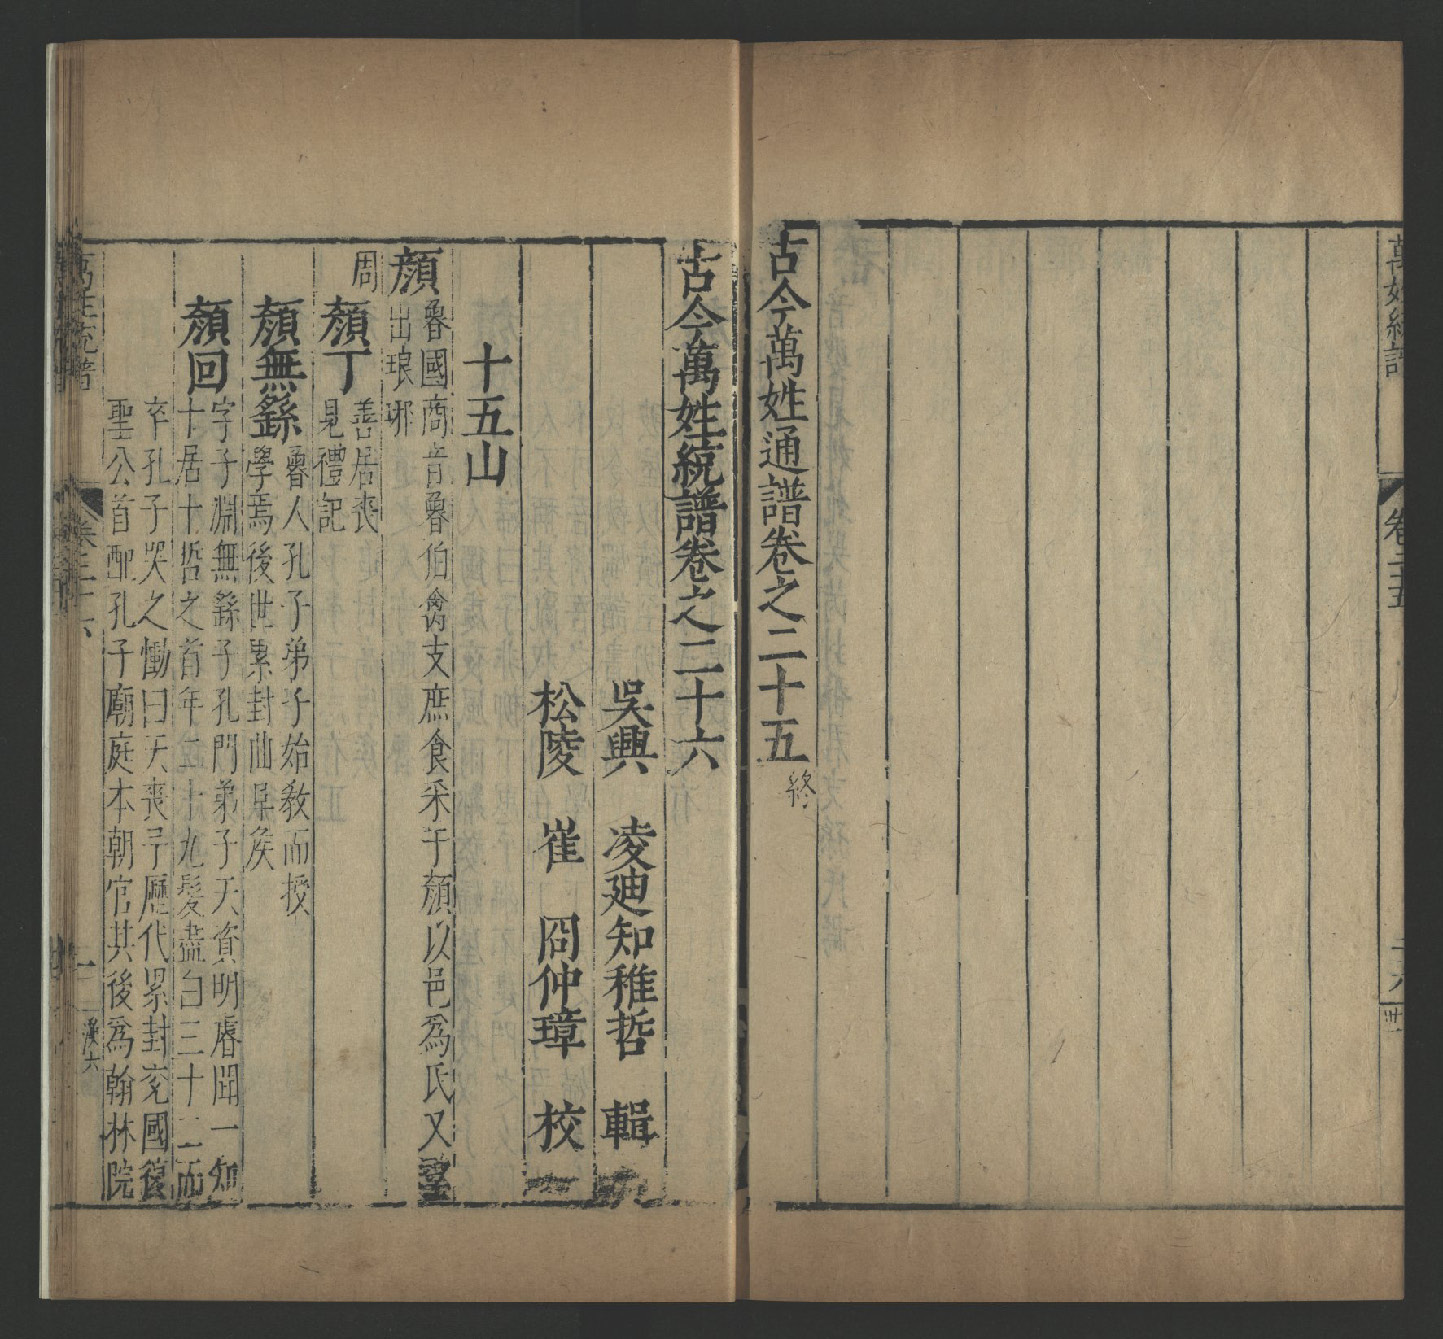 萬姓統譜 卷二十五
古今萬姓通譜卷之二十五
終
古今萬姓統譜卷之二十六
吳興 凌迪知稚哲 輯
松陵 崔 冏仲璋 校
十五山
顏
魯國商音魯伯禽支庶食采于顏以邑爲氏又望
出琅邪
周
顏丁
善居喪
見禮記
顏無繇
魯人孔子弟子始教而授
學焉後世累封曲阜侯
顏回
字子淵無繇子孔門弟子天資明睿聞一知
十居十哲之首年二十九髮盡白三十二而
卒孔子哭之慟曰天喪予歷代累封兗國復
聖公首配孔子廟庭本朝官其後爲翰林院
萬姓統譜 卷二十六 一